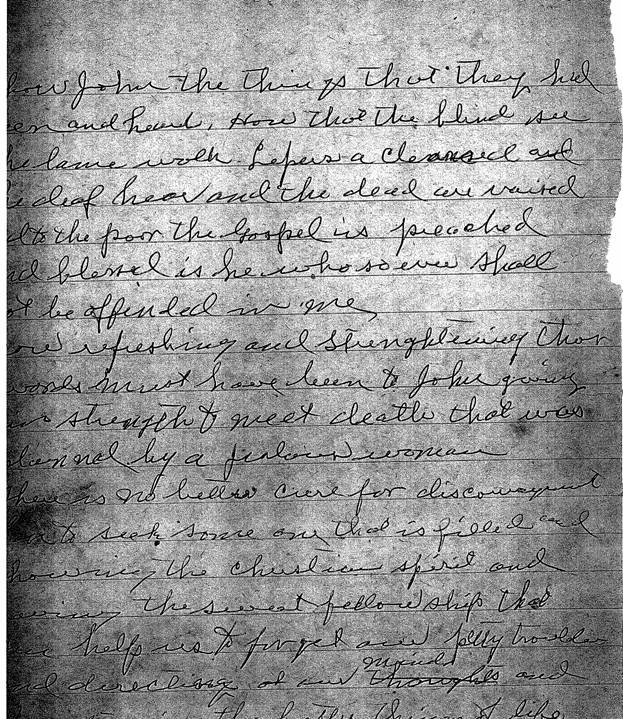 how John the things that they had
en and heard, How that the blind see
he lame walk Lepers a cleansed and
e deaf hear and the dead are raised
d to the poor the Gospel is preached
nd blessed is he whosoever shall
ot be offended in me,
ow refreshing and strenghtening thos
words must have been to John giving
strength to meet death that was
planned by a jealous woman
there is no better cure for
to seek some one that is filled and
showing the christian spirit and
the sweet fellowship that
helps us to forget our petty troubles
minds
nd directing of our thoughts and
the better things of life